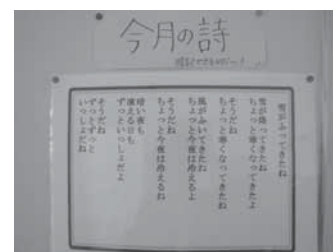 今月の詩
雪がふってきたね
雪が降ってきたね
ちょっと寒くなってきたよ
そうだね
ちょっと寒くなってきたね
風がふいてきたね
ちょっと今夜は冷えるよ
そうだね
ちょっと今夜は冷えるね
暗い夜も
凍える日も
ずっといっしょだよ
そうだね
ずっとずっと
いっしょだね